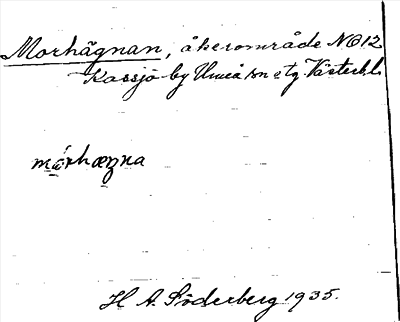 Morhägnan, åkerområde NO 12
Kassjö by Umeå sn etg. Västerb. l.
mårhæŋna
H. A. Söderberg 1935.